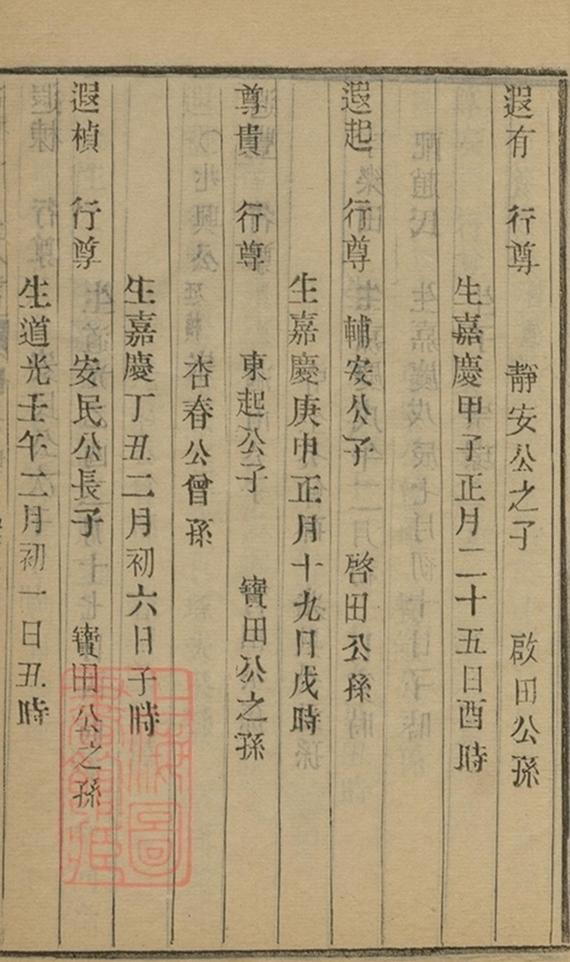 遐有　行尊　靜安公之子　啟田公孫
生嘉慶甲子正月二十五日酉時
遐起　行尊　輔安公子　啓田公孫
生嘉慶庚申正月十九日戌時
尊貴　行尊　東起公子　寶田公之孫
杏春公曾孫
生嘉慶丁丑二月初六日子時
遐楨　行尊　安民公長子　寶田公之孫
生道光壬午二月初一日丑時